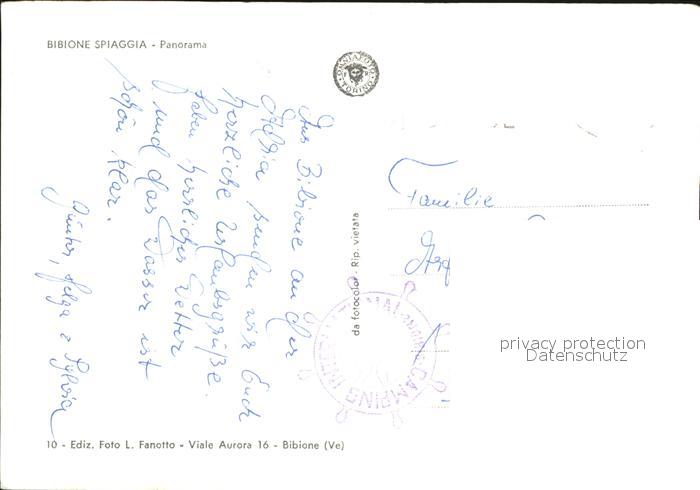 BIBIONE SPIAGGIA - Panorama
OMNIAFOTO
TORINO
Aus Bibione an der
Adria senden wir Euch
herzliche Urlaubsgrüße.
haben herrliches Wetter
und das Wasser ist
schön klar.
Günter, Helga & Sylvia
da fotocolor - Rip. vietata
Familie
CAMPING INTERNA
privacy protection
Datenschutz
10 - Ediz. Foto L. Fanotto - Viale Aurora 16 - Bibione (Ve)